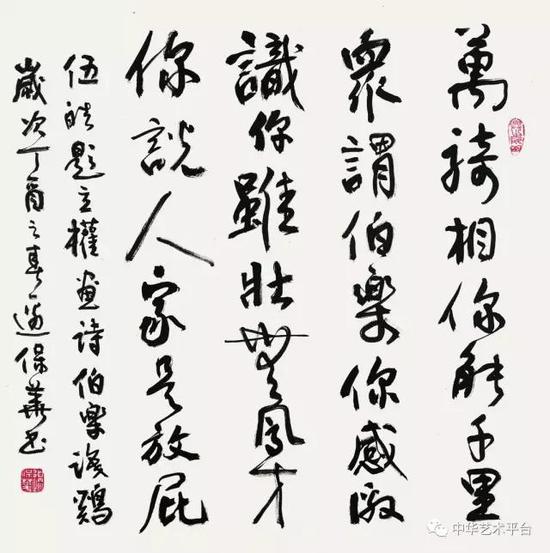 萬騎相你能千里
衆謂伯樂你感激
識你雖壯無鳳才
你說人家是放屁
伍皓題立權畫詩伯樂鷄
歲次丁酉之春邊保華書
中华艺术平台